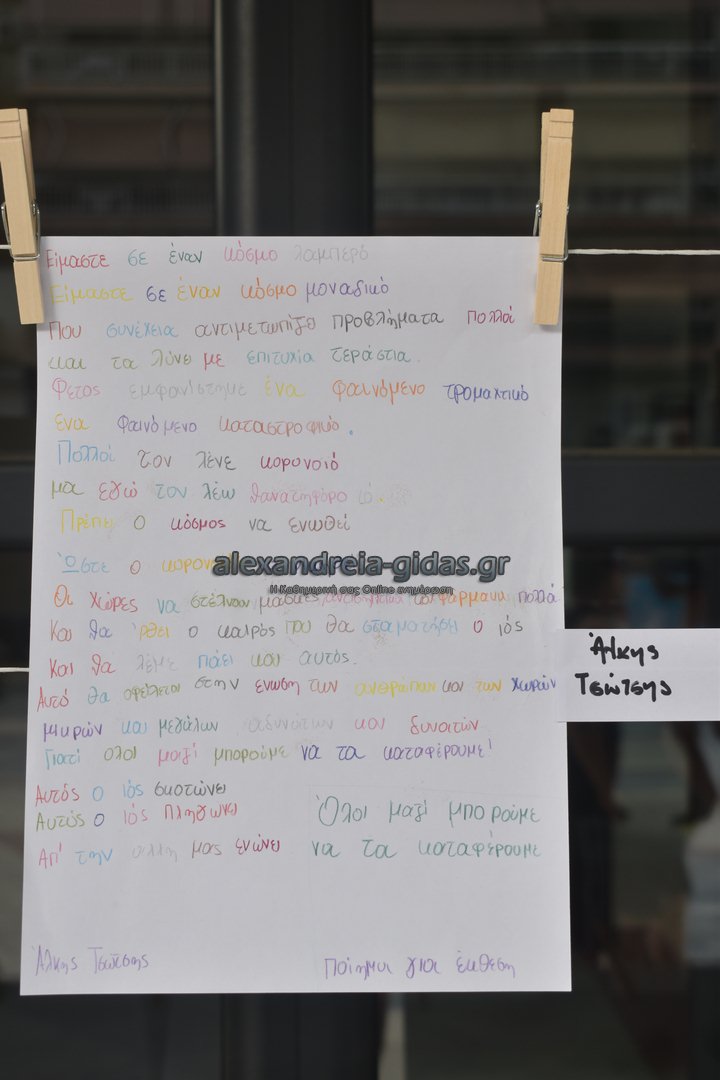 Είμαστε σε έναν κόσμο λαμπερό
Είμαστε σε έναν κόσμο μοναδικό
που συνέχεια αντιμετωπίζει προβλήματα πολλά
και τα λύνει με επιτυχία τεράστια.
Φέτος εμφανίστηκε ένα φαινόμενο τρομαχτικό
ένα φαινόμενο καταστροφικό.
Πολλοί τον λένε κορονοιό
μα εγώ τον λέω θανατηφόρο ιό.
Πρέπει ο κόσμος να ενωθεί
Ώστε ο
alexandreia-gidas.gr
Η Καθημερινή σας Online ενημέρωση
Οι χώρες να στέλνουν μάσκες αντισηπτικά και φάρμακα πολλά
Και θα 'ρθει ο καιρός που θα σταματήσει ο ιός
Και θα λέμε πάει και αυτός.
Αυτό θα οφείλεται στην ένωση των ανθρώπων και των χωρών
μικρών και μεγάλων αδυνάτων και δυνατών
Γιατί όλοι μαζί μπορούμε να τα καταφέρουμε!
Αυτός ο ιός σκοτώνει
Αυτός ο ιός πληγώνει
Απ' την άλλη μας ενώνει
Όλοι μαζί μπορούμε
να τα καταφέρουμε
Άλκης Τσώτσης
Ποίημα για έκθεση
Άλκης
Τσώτσης